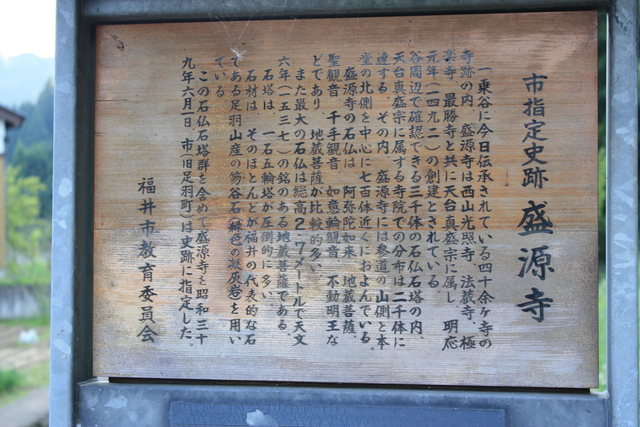 市指定史跡 盛源寺
一乗谷に今日伝承されている四十余ヶ寺の
寺跡の内、盛源寺は西山光照寺、法蔵寺、極
楽寺、最勝寺と共に天台真盛宗に属し、明応
元年（一四九二）の創建とされている。
谷周辺で確認できる三千体の石仏石塔の内、
天台真盛宗に属する寺院での分布は二千体に
達する。その内、盛源寺には参道の山側と本
堂の北側を中心に七百体近くにおよんでいる。
盛源寺の石仏は、阿弥陀如来、地蔵菩薩、
聖観音、千手観音、如意輪観音、不動明王な
どであり、地蔵菩薩が比較的多い。
また最大の石仏は総高2.7メートルで天文
六年（一五三七）の銘のある地蔵菩薩である。
石塔は、一石五輪塔が圧倒的に多い。
石材は、そのほとんどが福井の代表的な石
である足羽山産の笏谷石（緑色の凝灰岩）を用い
ている。
この石仏石塔群を含めて盛源寺を昭和三十
九年六月一日、市（旧足羽町）は史跡に指定した。
福井市教育委員会